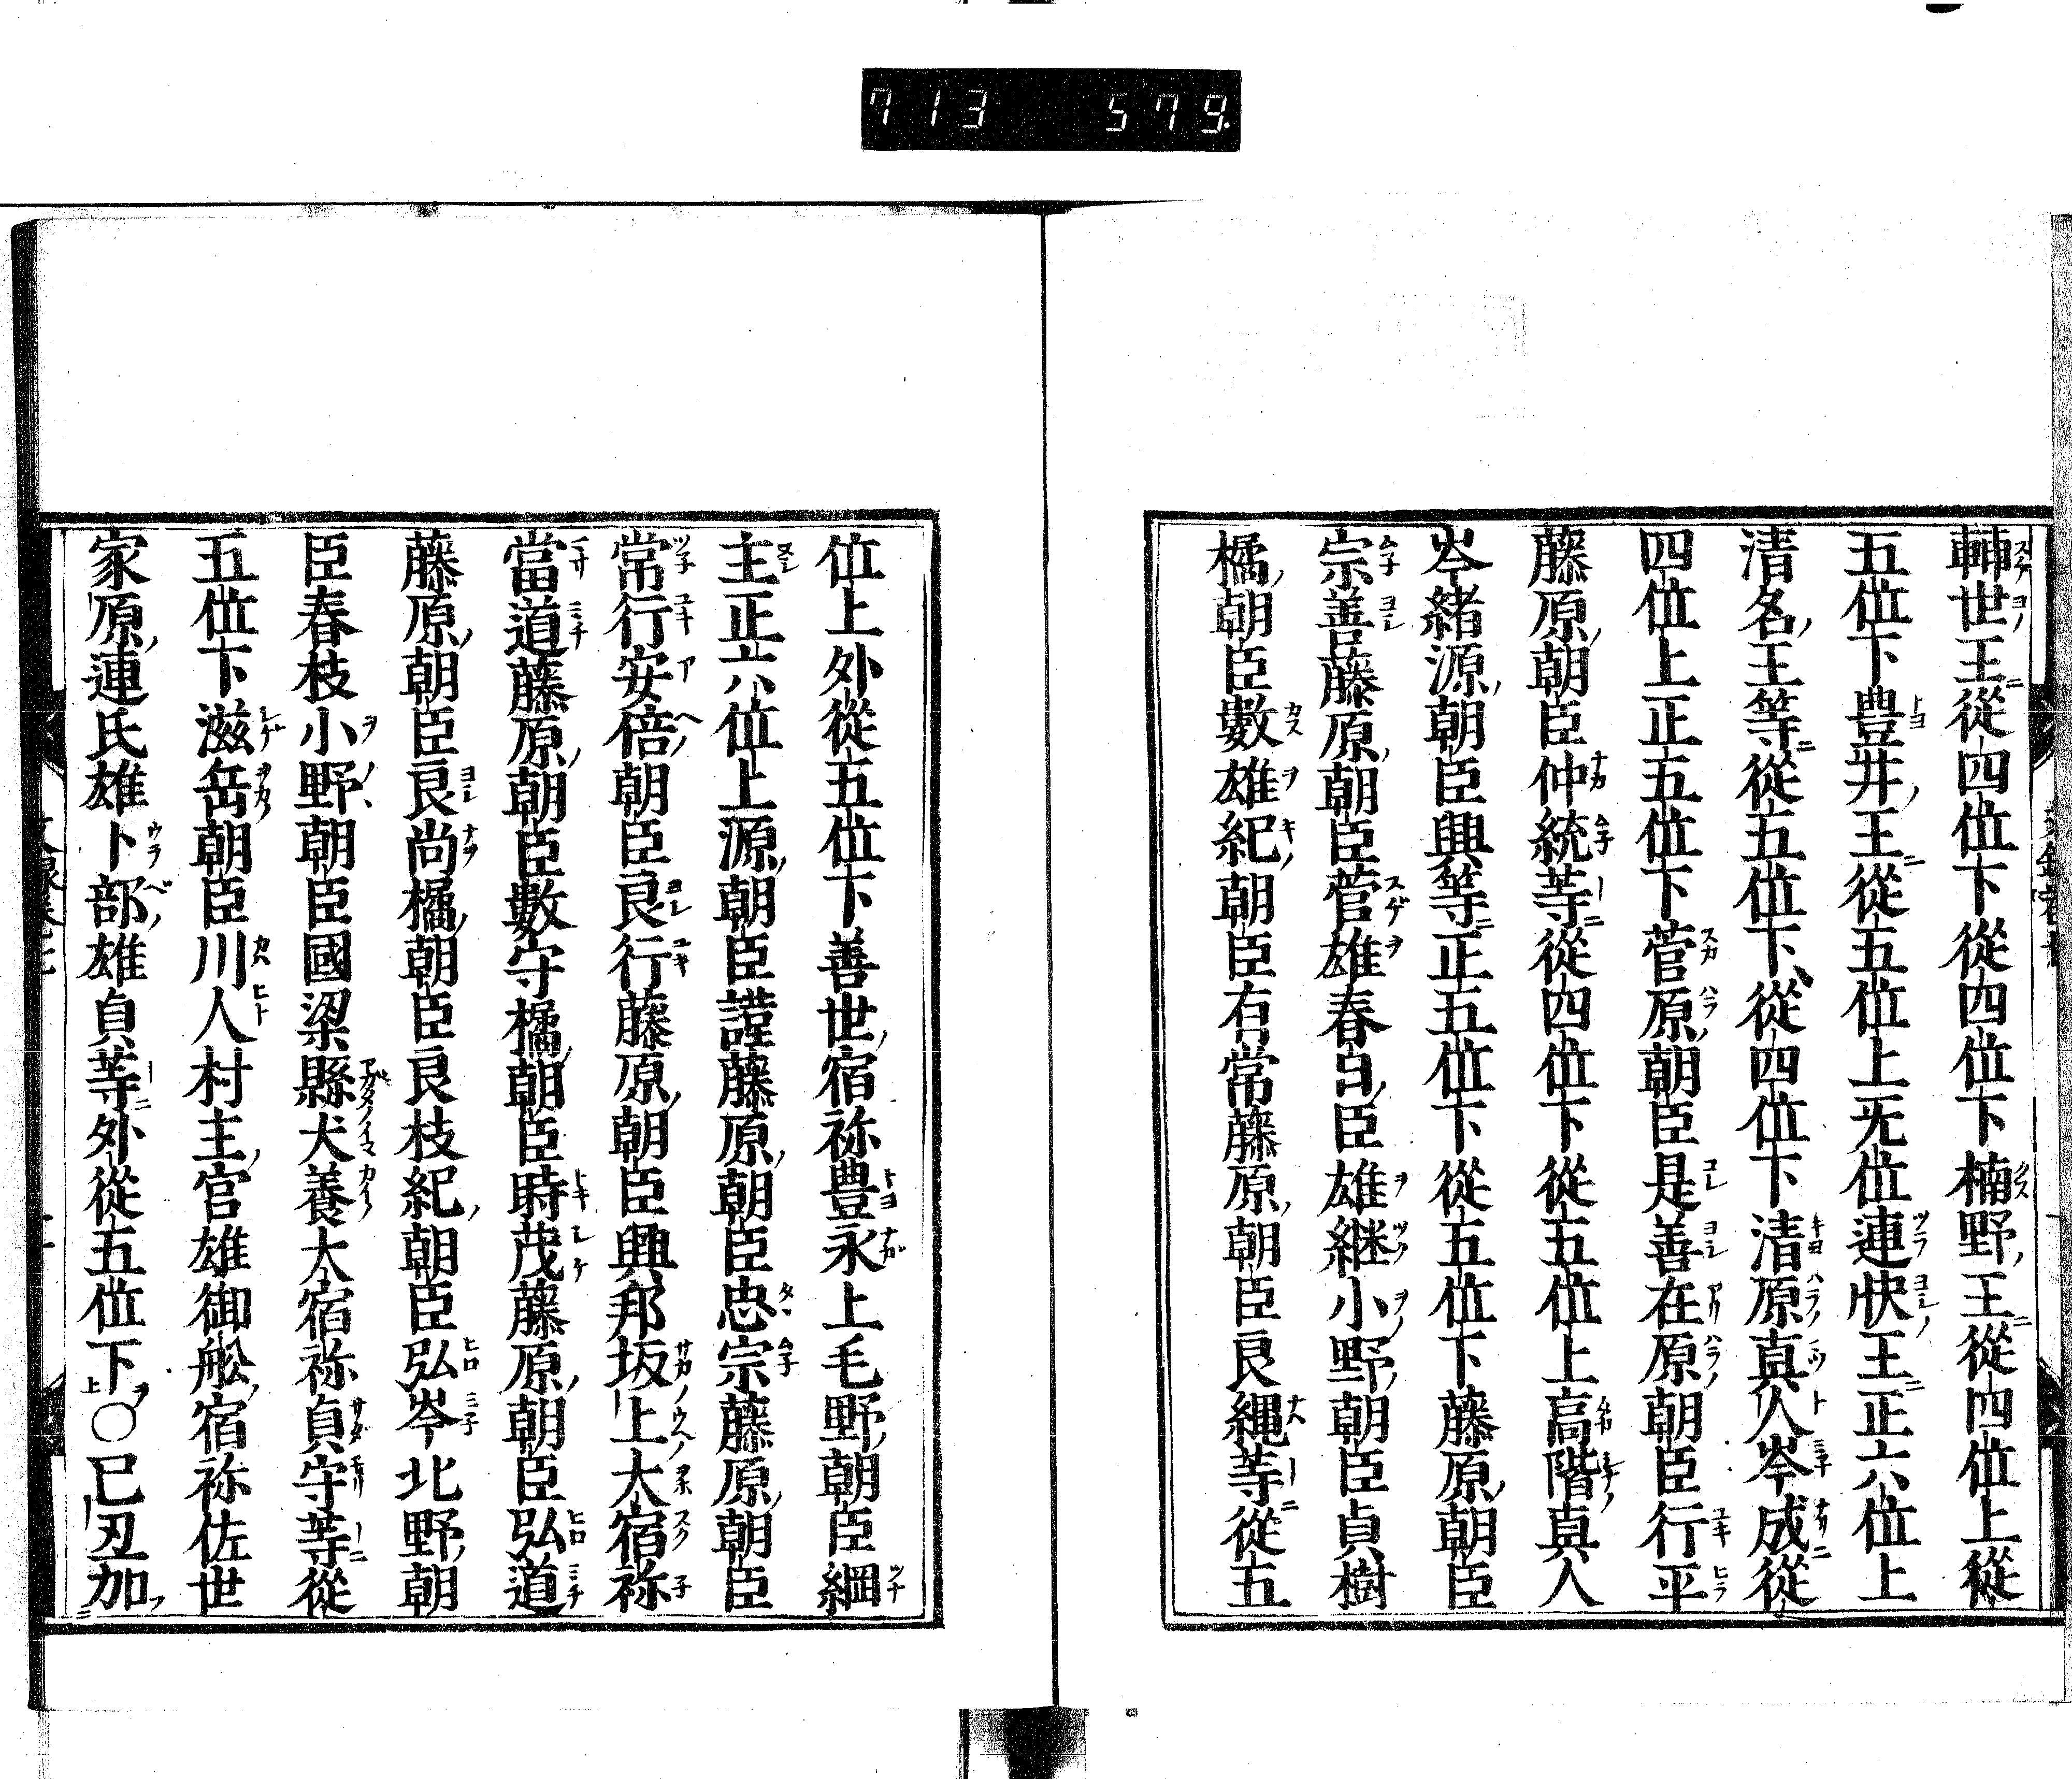 713 579.
輔世王從四位下從四位下楠野王從四位上從
五位下豊井王從五位上无位連快王正六位上
清名王等從五位下從四位下清原真人岑成從
四位上正五位下菅原朝臣是善在原朝臣行平
藤原朝臣仲統等從四位下從五位上高階真人
岑緒源朝臣興等正五位下從五位下藤原朝臣
宗善藤原朝臣菅雄春日臣雄継小野朝臣貞樹
橘朝臣數雄紀朝臣有常藤原朝臣良縄等從五
位上外從五位下善世宿祢豊永上毛野朝臣綱
主正六位上源朝臣謹藤原朝臣忠宗藤原朝臣
常行安倍朝臣良行藤原朝臣興邦坂上大宿祢
當道藤原朝臣數守橘朝臣時茂藤原朝臣弘道
藤原朝臣良尚橘朝臣良枝紀朝臣弘岑北野朝
臣春枝小野朝臣國梁縣犬養大宿祢貞守等從
五位下滋岳朝臣川人村主宮雄御舩宿祢佐世
家原連氏雄卜部雄貞等外從五位下〇已丑加